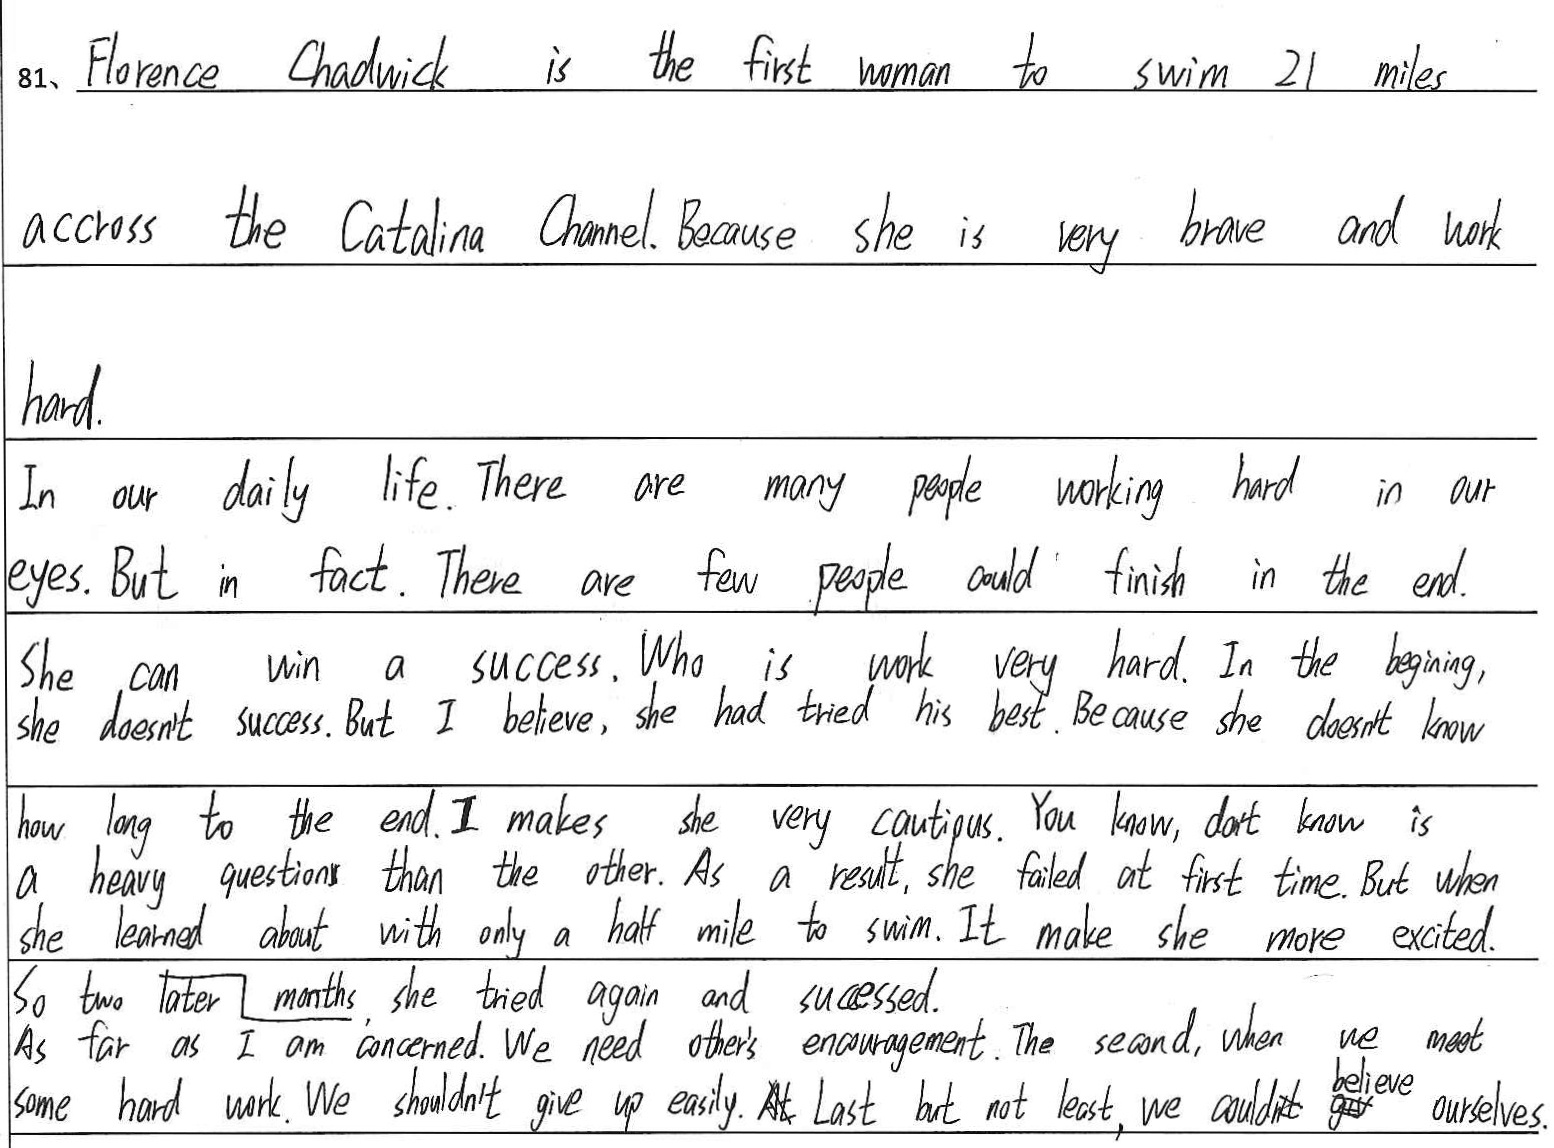 81、Florence Chadwick is the first woman to swim 21 miles
accross the Catalina Channel. Because she is very brave and work
hard.
In our daily life. There are many people working hard in our
eyes. But in fact. There are few people could finish in the end.
She can win a success. Who is work very hard. In the begining,
she doesn't success. But I believe, she had tried his best. Because she doesn't know
how long to the end. I makes she very cautious. You know, don't know is
a heavy questions than the other. As a result, she failed at first time. But when
she learned about with only a half mile to swim. It make she more excited.
So two later months, she tried again and sucessed.
As far as I am concerned. We need other's encouragement. The second, when we meet
some hard work. We shouldn't give up easily. Last but not least, we could believe ourselves.